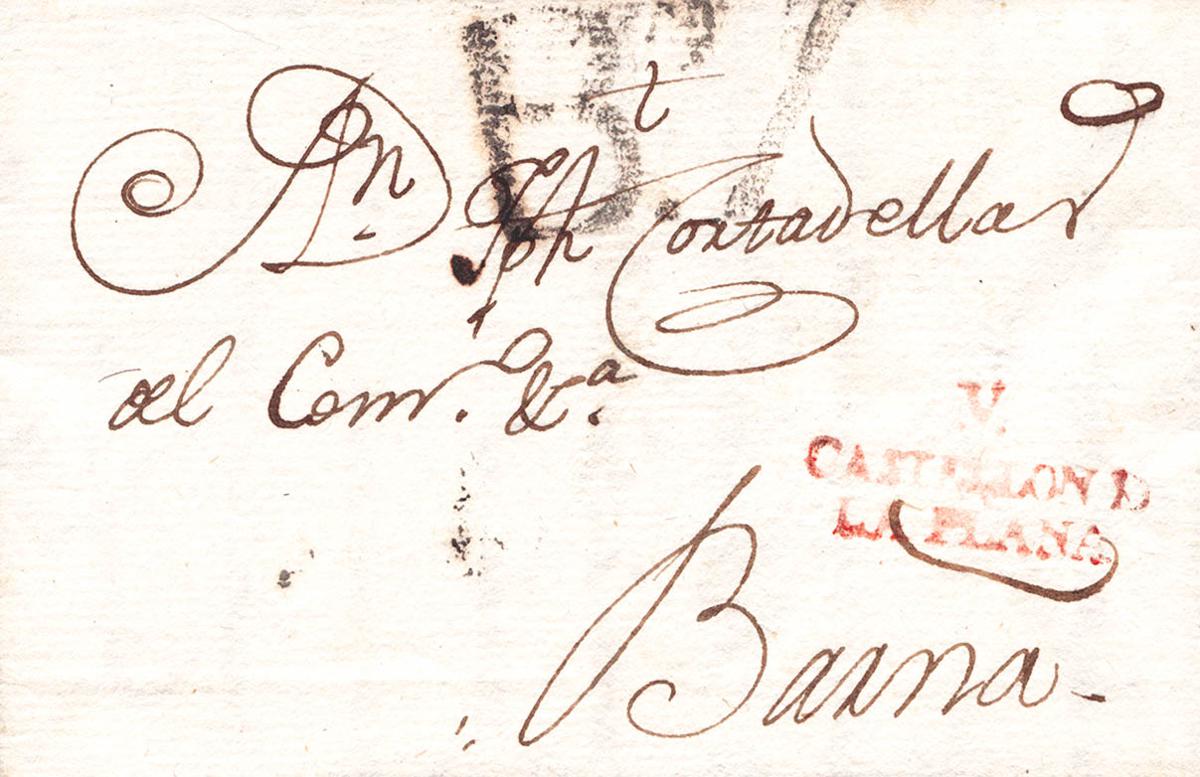 t
Dn. Jph Cortadellas
del Comr. &.a
V.
CASTELLON D
LA PLANA
Barna.